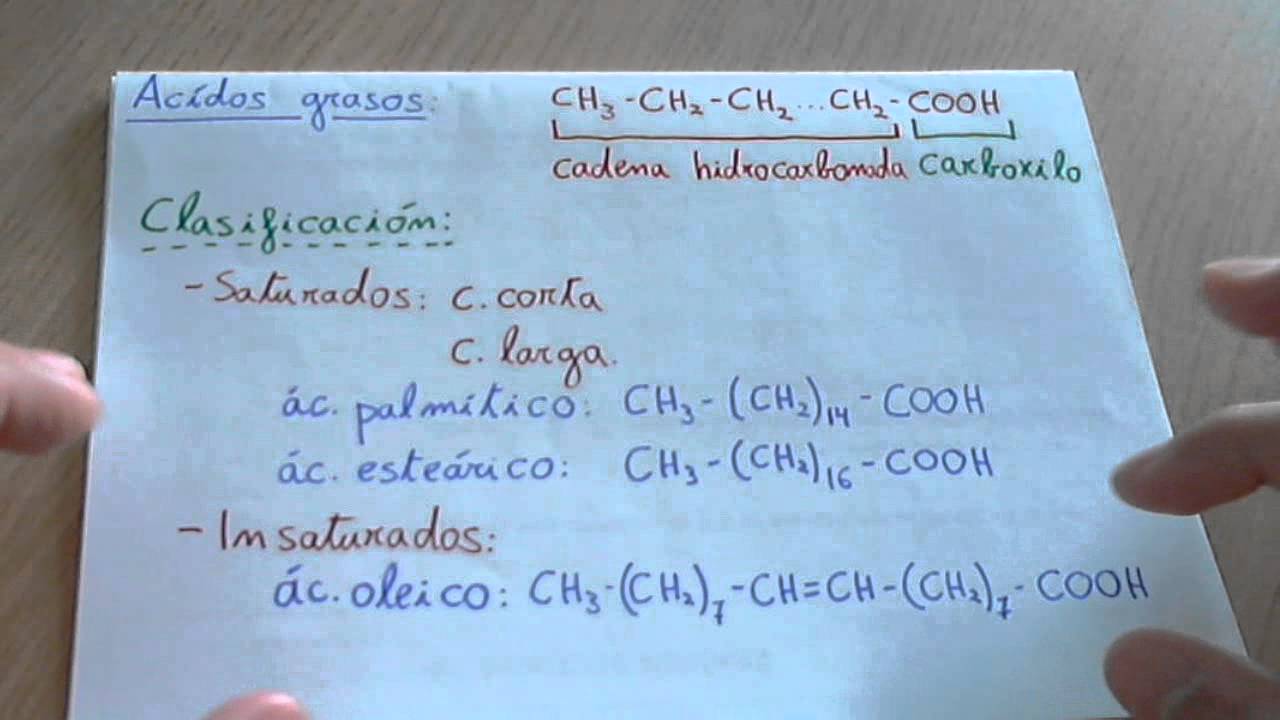 Acídos grasos: CH₃-CH₂-CH₂...CH₂-COOH
cadena hidrocarbonada carboxilo
Clasificación:
- Saturados: c. corta
c. larga.
ác. palmítico: CH₃-(CH₂)₁₄-COOH
ác. esteárico: CH₃-(CH₂)₁₆-COOH
- Insaturados:
ác. oleico: CH₃-(CH₂)₇-CH=CH-(CH₂)₇-COOH